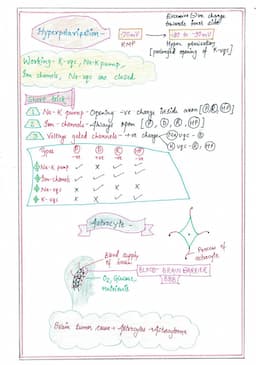 Hyperpolarization -
Excessive (-)ve charge
towards inner side
-70mV
-80 to -90mV
RMP
Hyper polarization
[prolonged opening of K-vgc]
Working: K-vgc, Na-K pump,
Ion channels, Na-vgc are closed.
Short trick:-
1 Na-K pump - Opening -ve charge inside axon [P, R, HP]
2 Ion-channels - Always open [P, D, R, HP]
3 Voltage gated channels - +ve charge
Na vgc - D
K vgc - R, HP
Types P D R HP
-ve +ve +ve -ve
Na-K pump ✓ ✗ ✓ ✓
Ion-channels ✓ ✓ ✓ ✓
Na-vgc ✗ ✓ ✗ ✗
K-vgc ✗ ✗ ✓ ✓
Astrocyte -
Blood supply
of brain
Process of
astrocyte
BLOOD BRAIN BARRIER
[BBB]
O2, Glucose,
nutrients
Brain tumor cause → Astrocytes → Astrocytoma